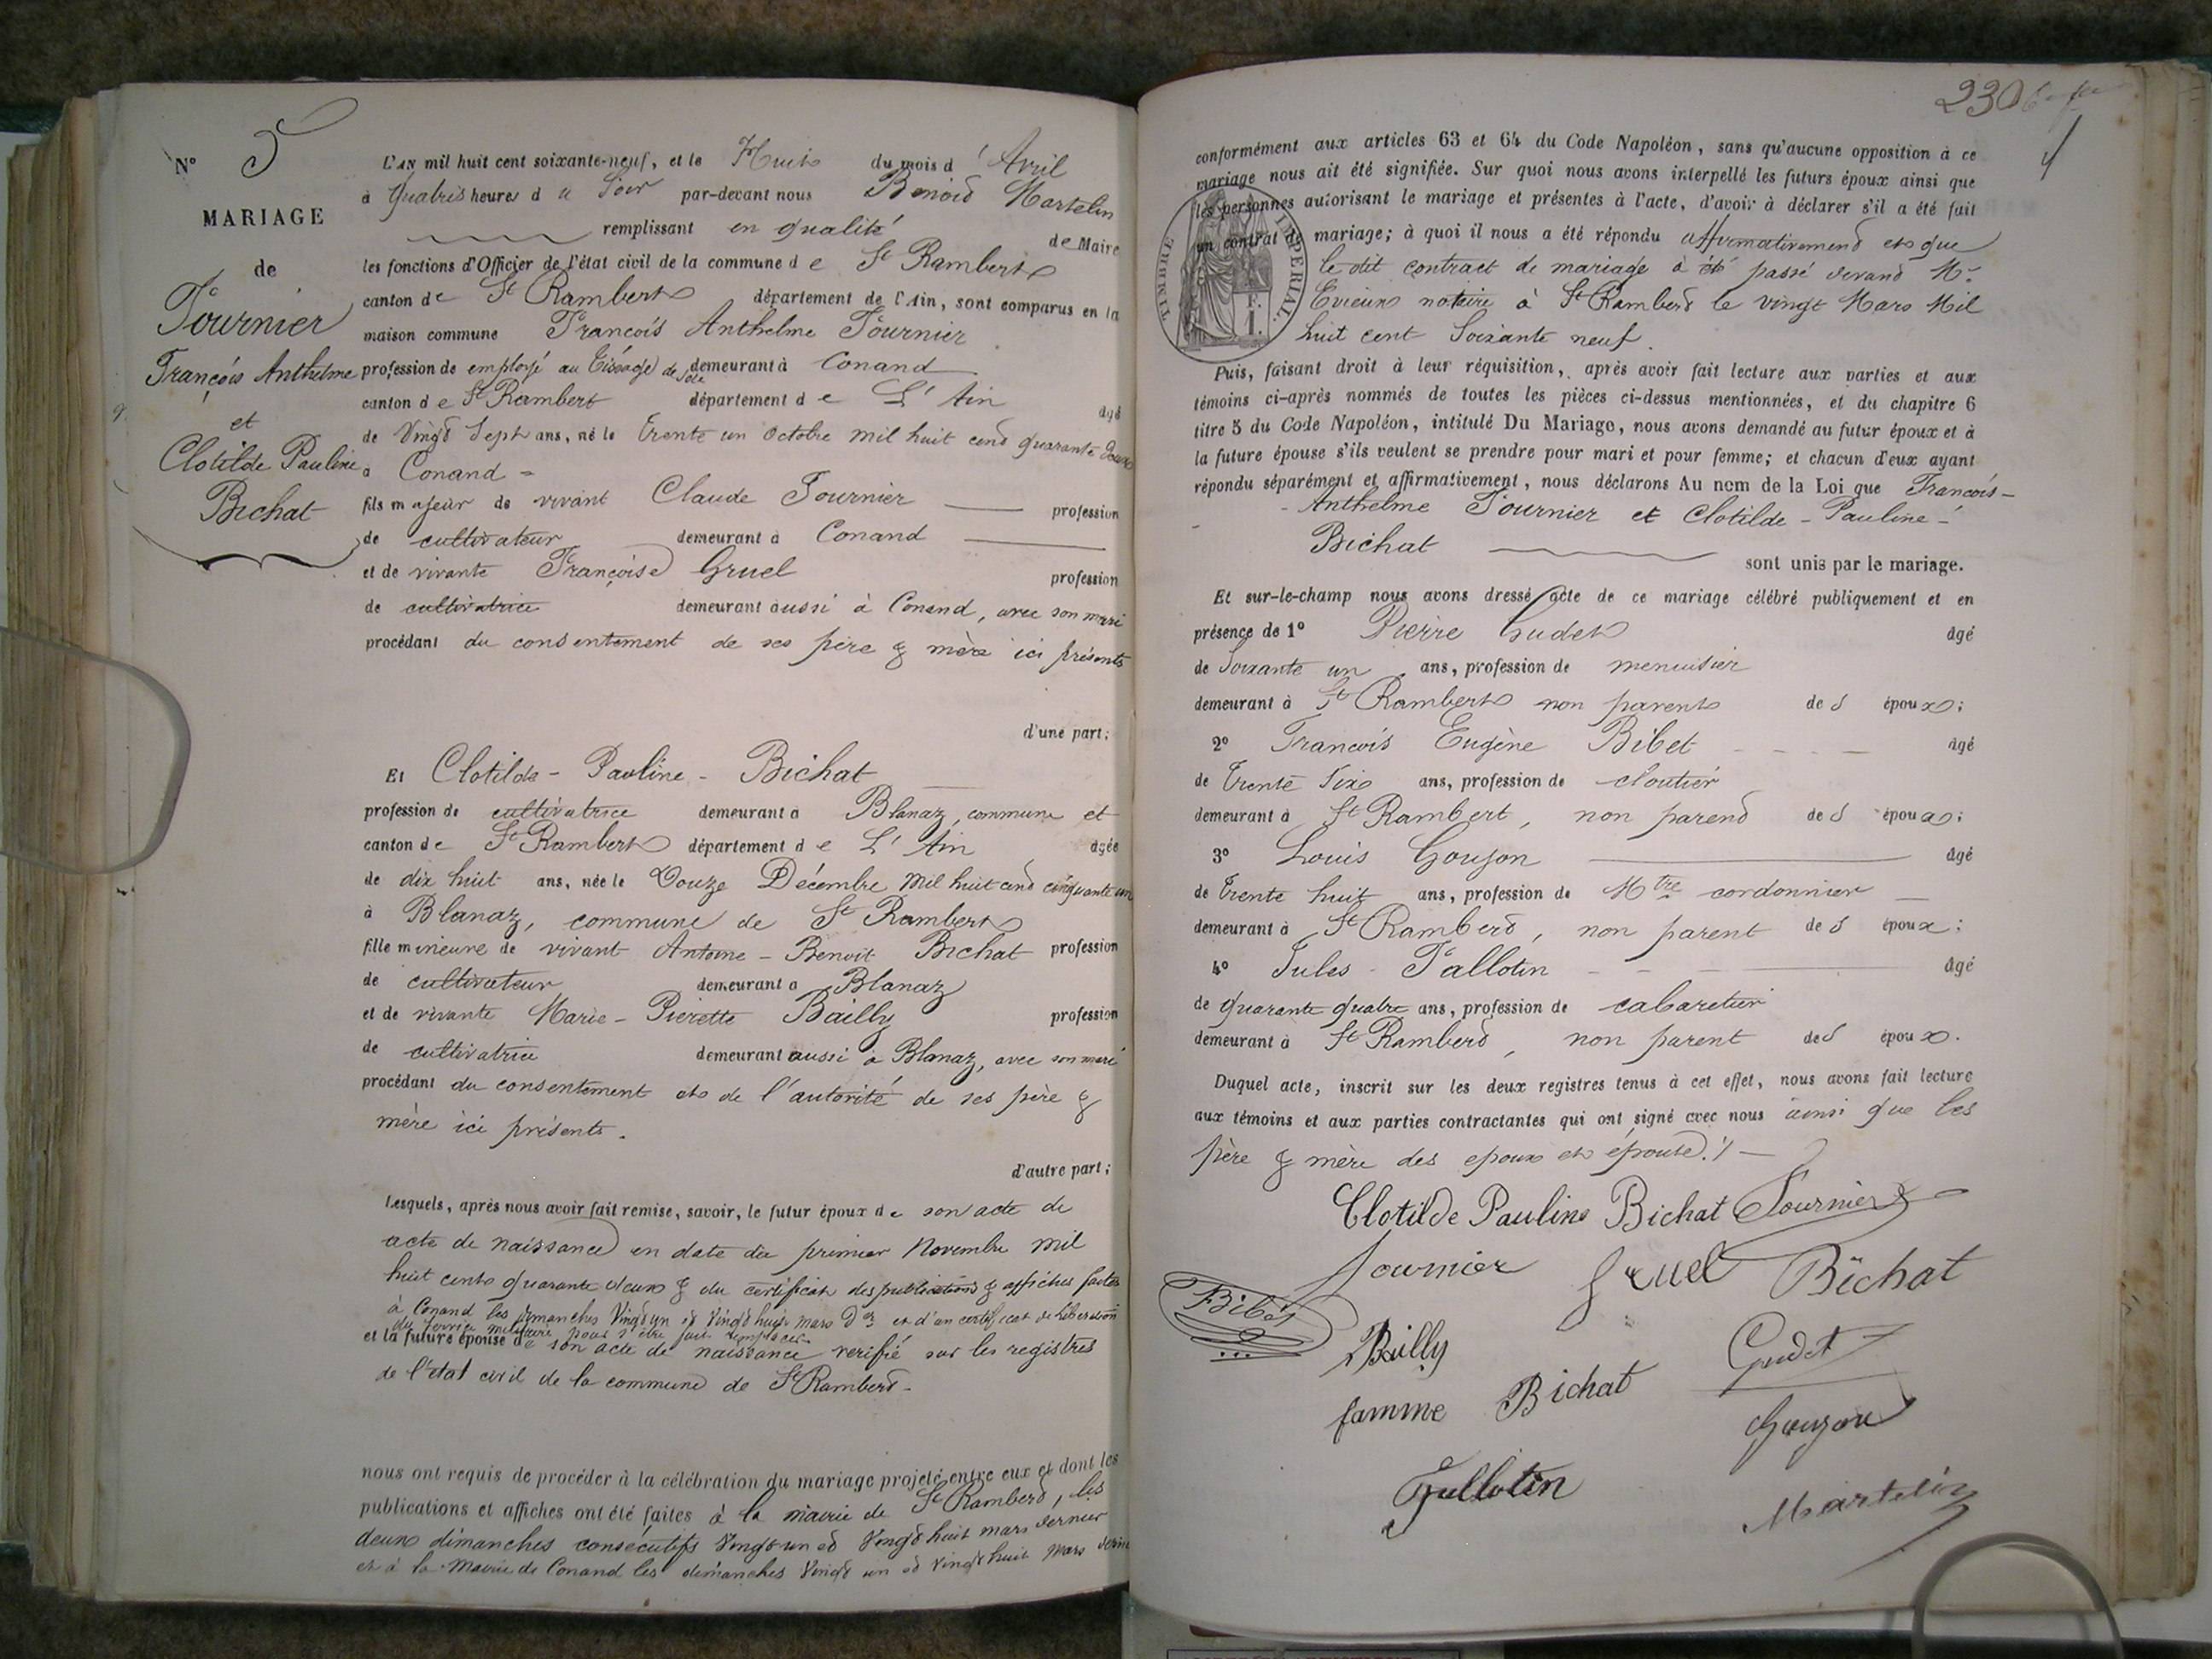 N° 5
MARIAGE
de
Fournier
François Anthelme
et
Clotilde Pauline
Bichat
L'AN mil huit cent soixante-neuf, et le Huit du mois d'Avril
à quatres heures du Soir par-devant nous Benoid Martelin
remplissant en qualité de Maire
les fonctions d'Officier de l'état civil de la commune de St Rambert
canton de St Rambert département de l'Ain, sont comparus en la
maison commune François Anthelme Fournier
profession de employé au tissage de soie demeurant à Conand
canton de St Rambert département de L'Ain âgé
de Vingt Sept ans, né le trente un Octobre mil huit cend quarante deux
à Conand =
fils majeur de vivant Claude Fournier profession
de cultivateur demeurant à Conand
et de vivante Françoise Gruel profession
de cultivatrice demeurant aussi à Conand, avec son mari
procédant du consentement de ses père & mère ici présents
d'une part;
Et Clotilde - Pauline - Bichat
profession de cultivatrice demeurant à Blanaz, commune et
canton de St Rambert département de L'Ain âgée
de dix huit ans, née le Douze Décembre Mil huit cend cinquante un
à Blanaz, commune de St Rambert
fille mineure de vivant Antoine - Benoit Bichat profession
de cultivateur demeurant à Blanaz
et de vivante Marie - Pierette Bailly profession
de cultivatrice demeurant aussi à Blanaz, avec son mari
procédant du consentement et de l'autorité de ses père &
mère ici présents.
d'autre part;
Lesquels, après nous avoir fait remise, savoir, le futur époux de son acte de
acte de naissance en date du premier Novembre mil
huit cents quarante deux & du certificat des publications & affiches faites
à Conand les dimanches Vingt un & Vingt huit mars dr et d'un certificat de libération
du service militaire pour s'être fait remplacer
et la future épouse de son acte de naissance verifié sur les registres
de l'état civil de la commune de St Rambert.
nous ont requis de procéder à la célébration du mariage projeté entre eux et dont les
publications et affiches ont été faites à la mairie de St Rambert, les
deux dimanches consécutifs Vingt un et Vingt huit mars dernier
et à la Mairie de Conand les dimanches Vingt un et vingt huit mars
230
conformément aux articles 63 et 64 du Code Napoléon, sans qu'aucune opposition à ce
mariage nous ait été signifiée. Sur quoi nous avons interpellé les futurs époux ainsi que
les personnes autorisant le mariage et présentes à l'acte, d'avoir à déclarer s'il a été fait
un contrat de mariage; à quoi il nous a été répondu affirmativement et que
le dit contract de mariage à été passé devand Mr
Evieux notaire à St Rambert le vingt Mars Mil
huit cent Soixante neuf.
TIMBRE IMPERIAL
1 F.
Puis, faisant droit à leur réquisition, après avoir fait lecture aux parties et aux
témoins ci-après nommés de toutes les pièces ci-dessus mentionnées, et du chapitre 6
titre 5 du Code Napoléon, intitulé Du Mariage, nous avons demandé au futur époux et à
la future épouse s'ils veulent se prendre pour mari et pour femme; et chacun d'eux ayant
répondu séparément et affirmativement, nous déclarons Au nom de la Loi que François -
- Anthelme Fournier et Clotilde - Pauline -
Bichat sont unis par le mariage.
Et sur-le-champ nous avons dressé acte de ce mariage célébré publiquement et en
présence de 1° Pierre Gudet âgé
de Soixante un ans, profession de menuisier
demeurant à St Rambert non parents des époux;
2° François Eugène Bibet âgé
de trente Six ans, profession de cloutier
demeurant à St Rambert, non parend des époux;
3° Louis Goujon âgé
de trente huit ans, profession de Mtre cordonnier
demeurant à St Rambert, non parent des époux;
4° Jules Fallotin âgé
de quarante quatre ans, profession de cabaretier
demeurant à St Rambert, non parent des époux.
Duquel acte, inscrit sur les deux registres tenus à cet effet, nous avons fait lecture
aux témoins et aux parties contractantes qui ont signé avec nous ainsi que les
père & mère des epoux et épouse ./.
Clotilde Pauline Bichat Fournier
fournier gruel Bichat
Bibet
Bailly Gudet
famme Bichat
Goujon
Fallotin
Martelin